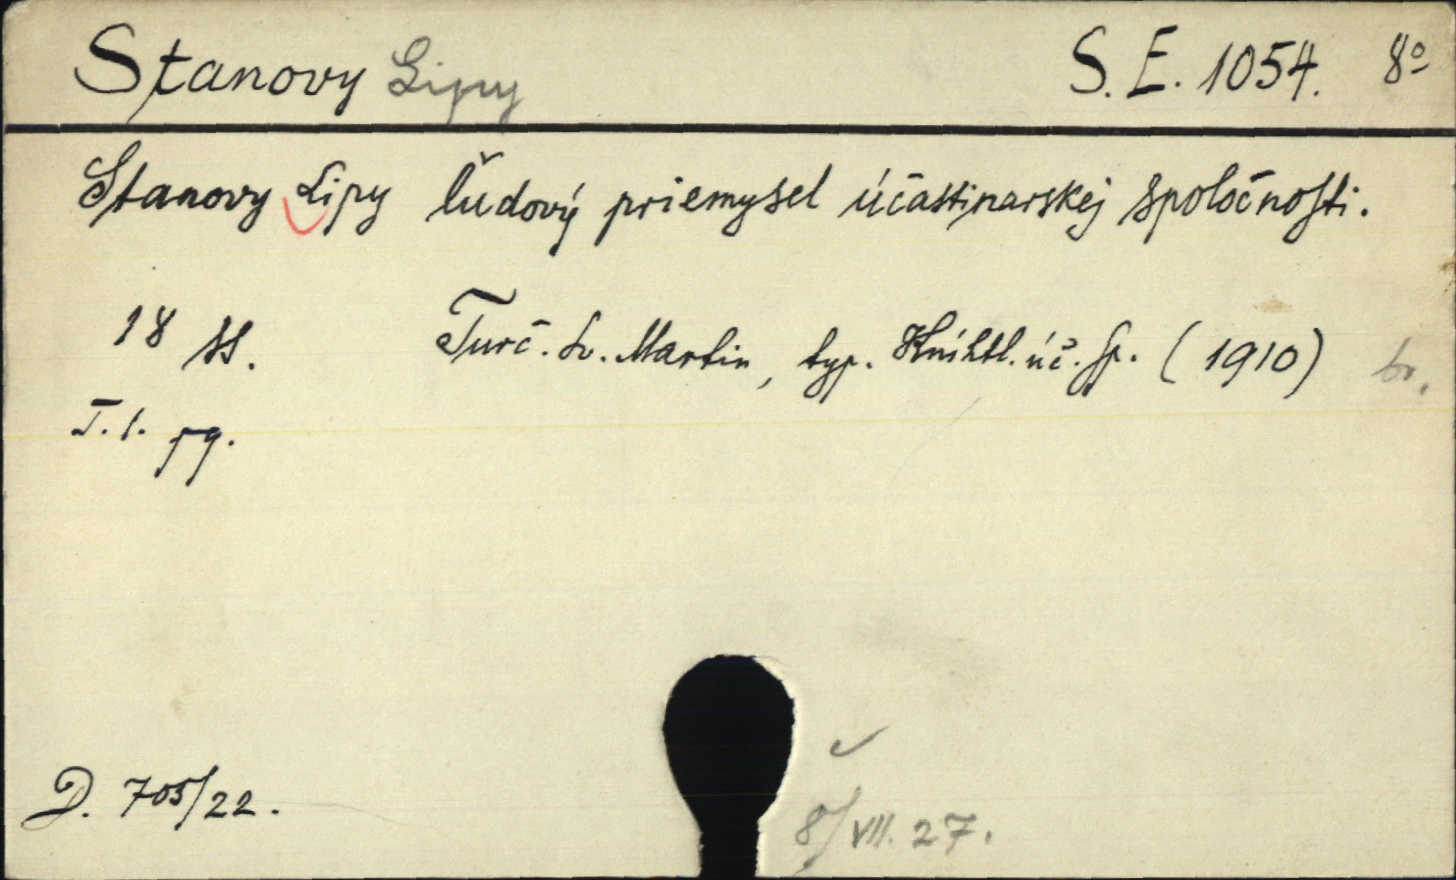 Stanovy Lipy S. E. 1054. 8º
Stanovy Lipy ľudový priemysel účastinarskej spoločnosti.
18 ss. Turč. Sv. Martin, typ. Kníhtl. úč. sp. (1910) br.
T. l. pg.
D. 705/22.
8/VII. 27.